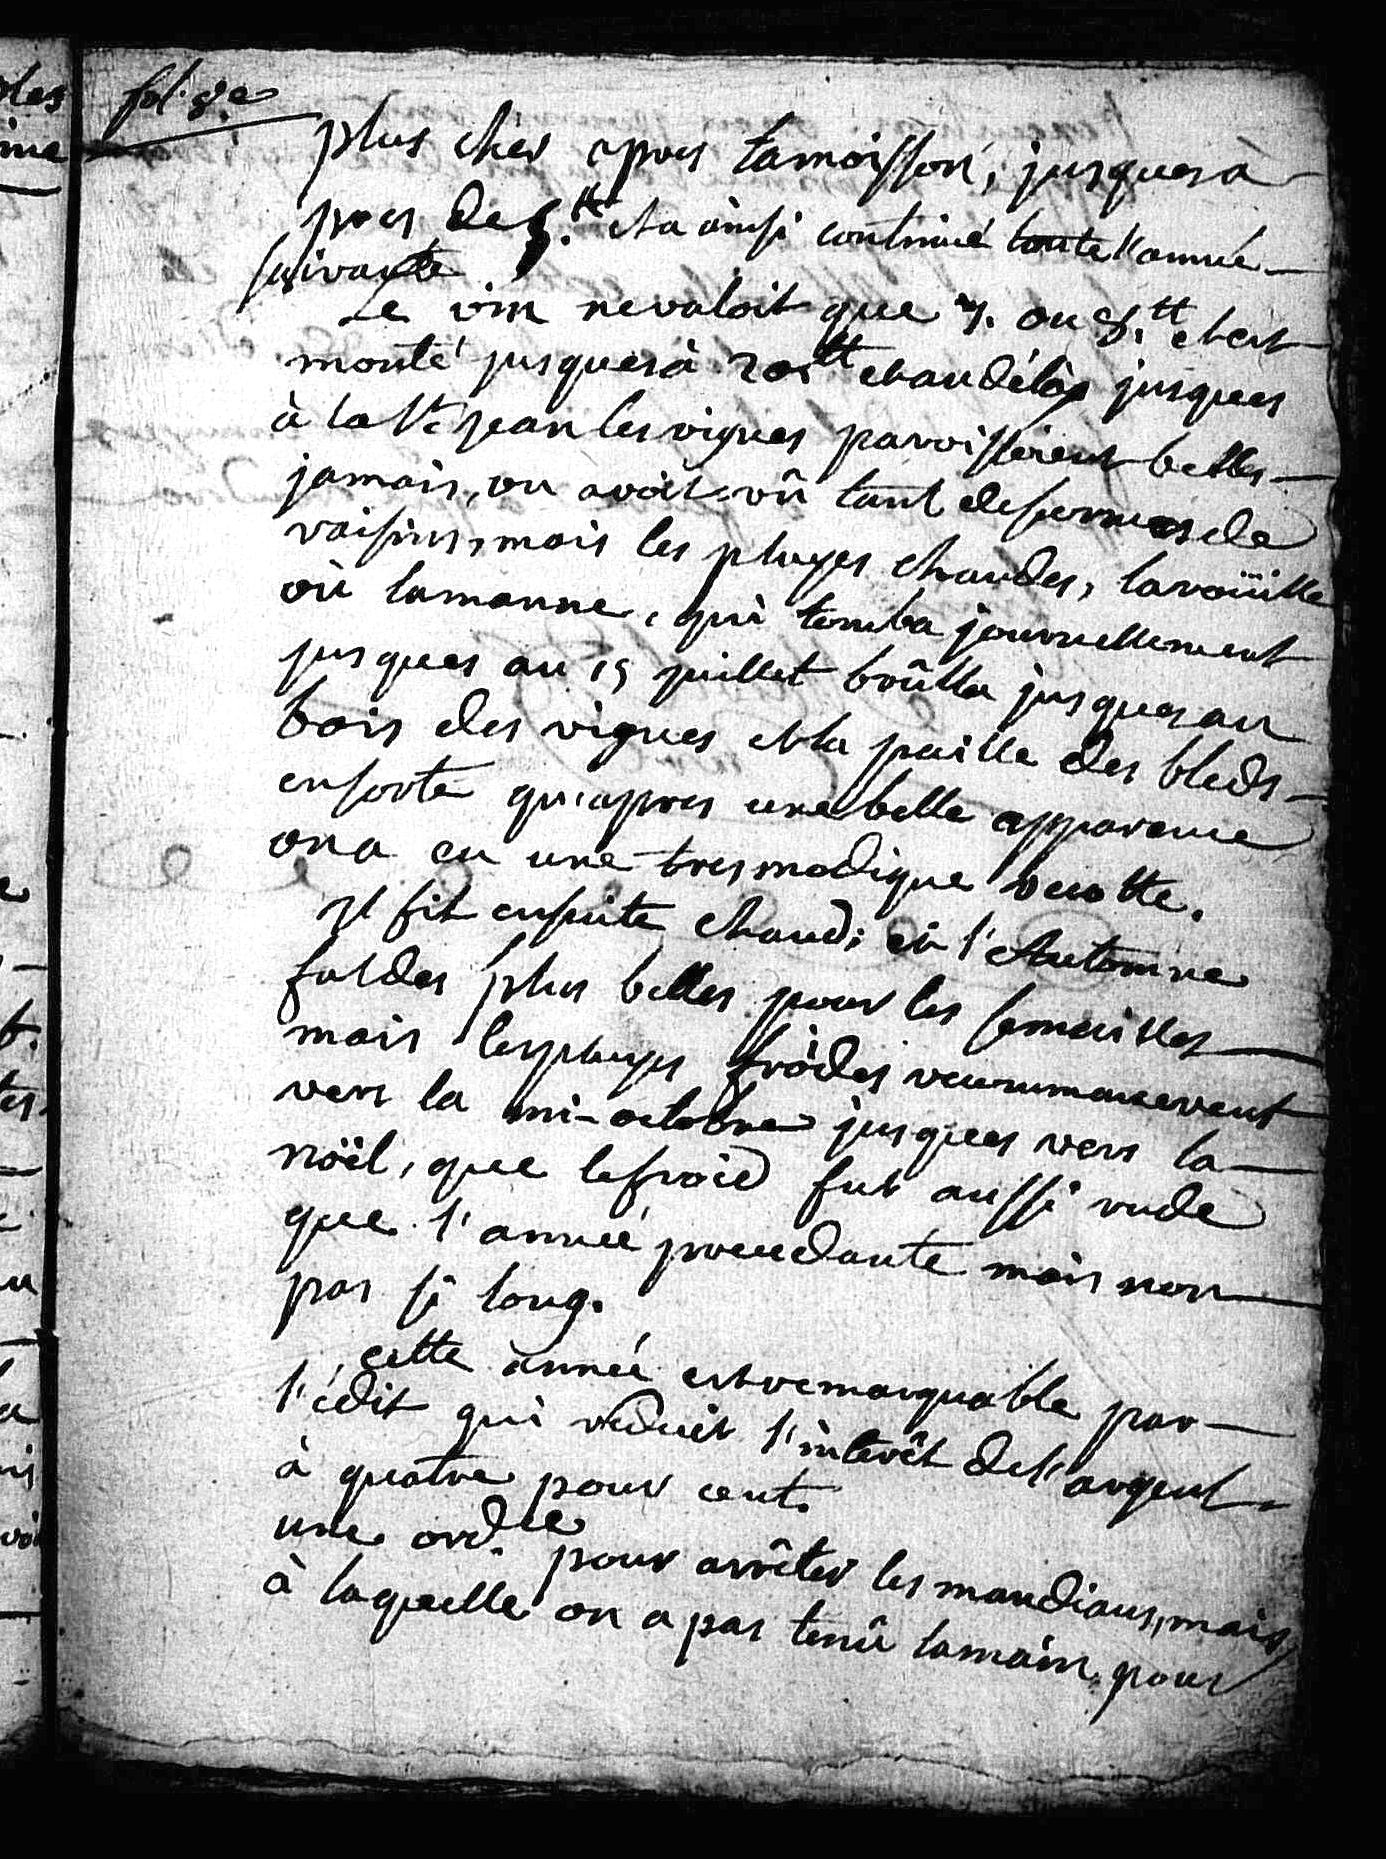 fol. 8.e
plus cher apres lamoisson, jusques a
pres de 5.tt et a ainsi continué toute l'année
suivante
Le vin nevaloit que 7. ou 8.tt et est
monté jusques à 20.tt et au délà jusques
à la St Jean les vignes paroissoient belles
jamais, on avoit vû tant de formes de
raisins, mais les pluyes chaudes, la roüille
où lamanne, qui tomba journellement
jusques au 15 juillet brûlla jusques au
bois des vignes et la paille des bleds
ensorte qu'apres une belle apparence
on a eu une tres modique recolte.
Il fit ensuite chaud; et l'Automne
fut des plus belles pour les semailles
mais les pluyes froides recommancerent
vers la mi-octobre jusques vers la
noël, que le froid fut aussi rude
que l'année precedante mais non
pas si long.
cette année est remarquable par
l'édit qui reduit l'interêt de l'argent
à quatre pour cent.
une ord.ce pour arrêter les mandians, mais
à laquelle on a pas tenû lamain, pour